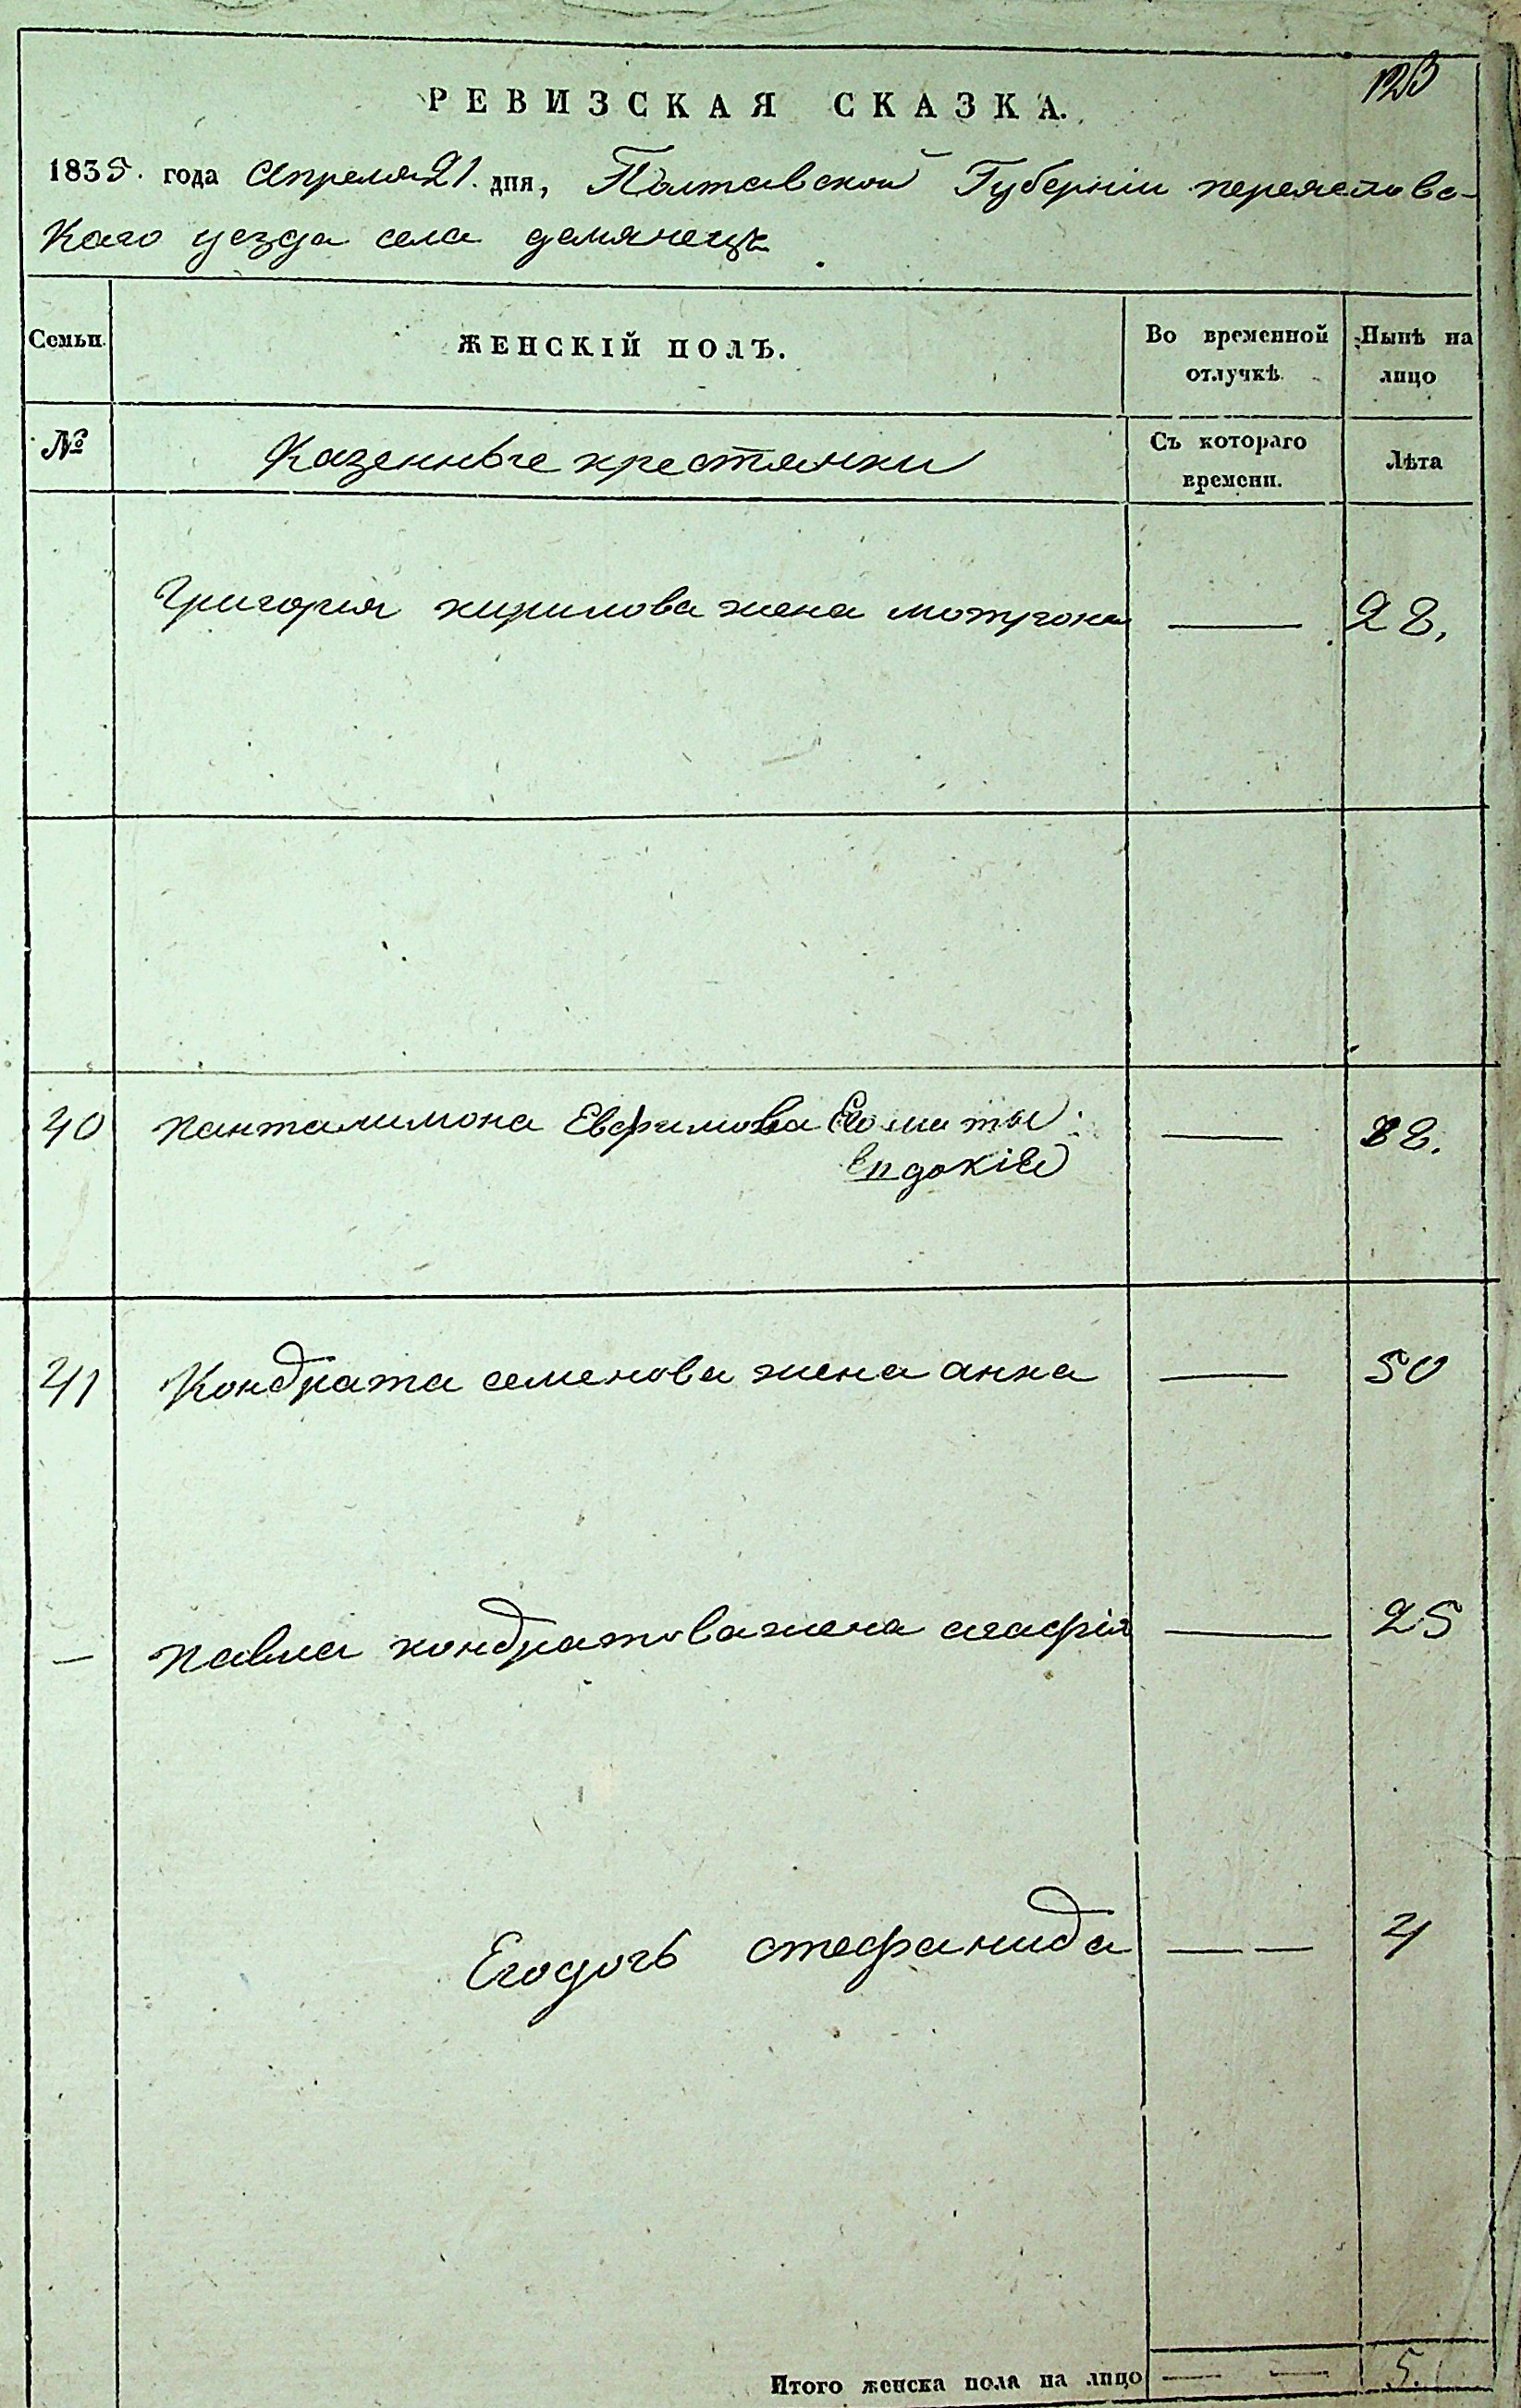 123
РЕВИЗСКАЯ СКАЗКА.
1835. года Апреля 21. дня, Полтавской Губернiи переяславс-
Каго уезда села демянецъ
Семьи. ЖЕНСКIЙ ПОЛЪ. Во временной отлучкѣ. Нынѣ на лицо
№ Казенные крестянки Съ котораго времени. Лѣта
Григорiя кирилова жена — 28.
40 панталимона Евфимова Его мати: — 82.
Евдокiя
41 Кондрата семенова жена анна — 50
— павла кондратова жена агафiя — 25
Его дочь стефанида — — 4
Итого женска пола на лицо — — 5.